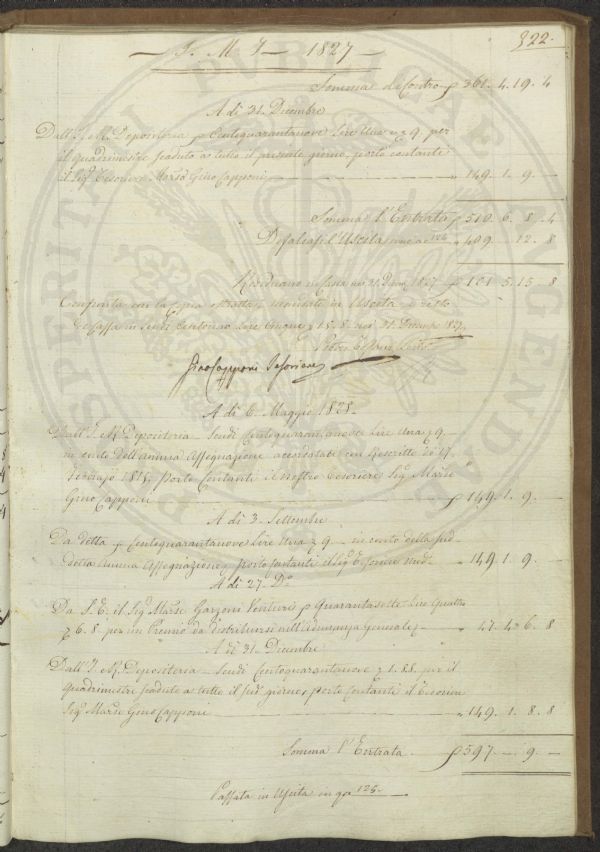 322.
— J. M. J — 1827 —
Somma di Contro — ƒ 361. 4. 19. 4
A dì 31. Dicembre
Dall' I. e R. Depositeria ƒ Centoquarantanove Lire Una e 9. per
il quadrimestre scaduto a tutto il presente giorno, portò contanti
il Sigr. Tesoriere Marse Gino Capponi — 149. 1. 9. —
Somma l'Entrata ƒ 510. 6. 8. 4
Defalcasi l'Uscita 126 409. — 12. 8
Residuano in Cassa 31. Dicre 1827 ƒ 101. 5. 15. 8
31. Dicembre 1827
Gino Capponi Tesoriere
A dì 6. Maggio 1828.
Dall' I. e R. Depositeria Scudi Centoquarantanove Lire Una e 9. —
in conto dell' annua Assegnazione accordata con Rescritto de' 4.
Febbrajo 1818. Portò Contanti il nostro Tesoriere Sigr. Marse
Gino Capponi — ƒ 149. 1. 9. —
A dì 3. Settembre
Da detta ƒ Centoquarantanove Lire Una e 9 — in conto della sud-
detta Annua Assegnazione, portò contanti il Sigr. Tesoriere sudo. — 149. 1. 9. —
A dì 27. Do.
Da S. E. il Sigr. Marse Garzoni Venturi ƒ Quarantasette Lire Quattro
e 6. 8 per un Premio da distribuirsi nell' Adunanza Generale — 47. 4. 6. 8
A dì 31. Dicembre
Dall' I. e R. Depositeria — Scudi Centoquarantanove e 1. 8. 8. per il
Quadrimestre scaduto a tutto il sudo. giorno, portò Contanti il Tesoriere
Sigr. Marse Gino Capponi — 149. 1. 8. 8
Somma l'Entrata ƒ 597. — 9. —
Passata in Uscita in qo 126. —